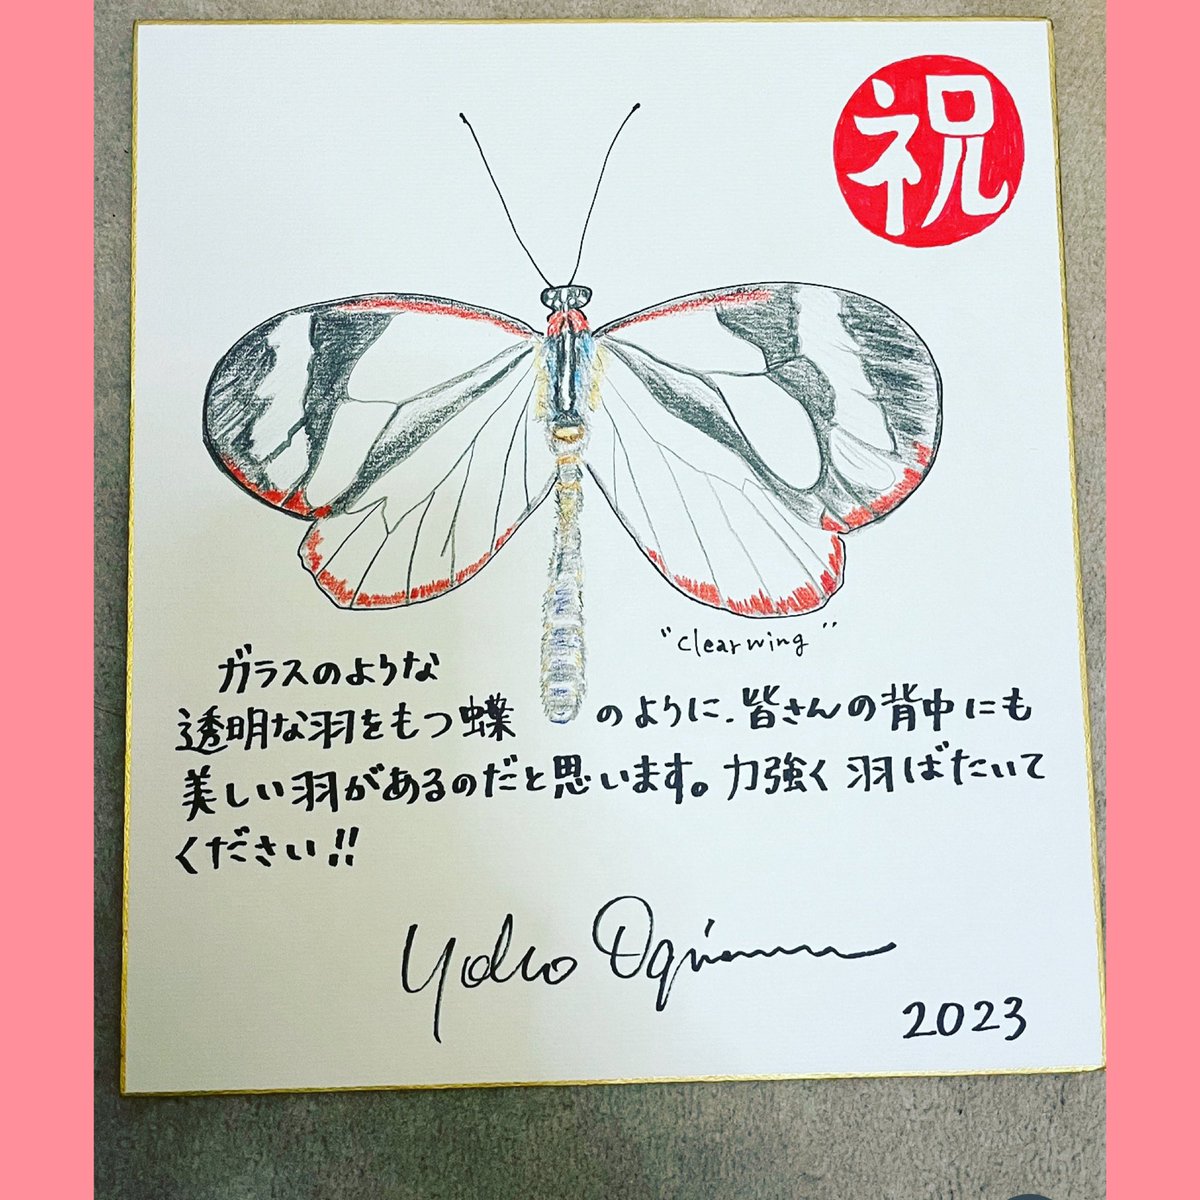 祝
"clearwing"
ガラスのような
透明な羽をもつ蝶のように、皆さんの背中にも
美しい羽があるのだと思います。力強く羽ばたいて
ください!!
2023